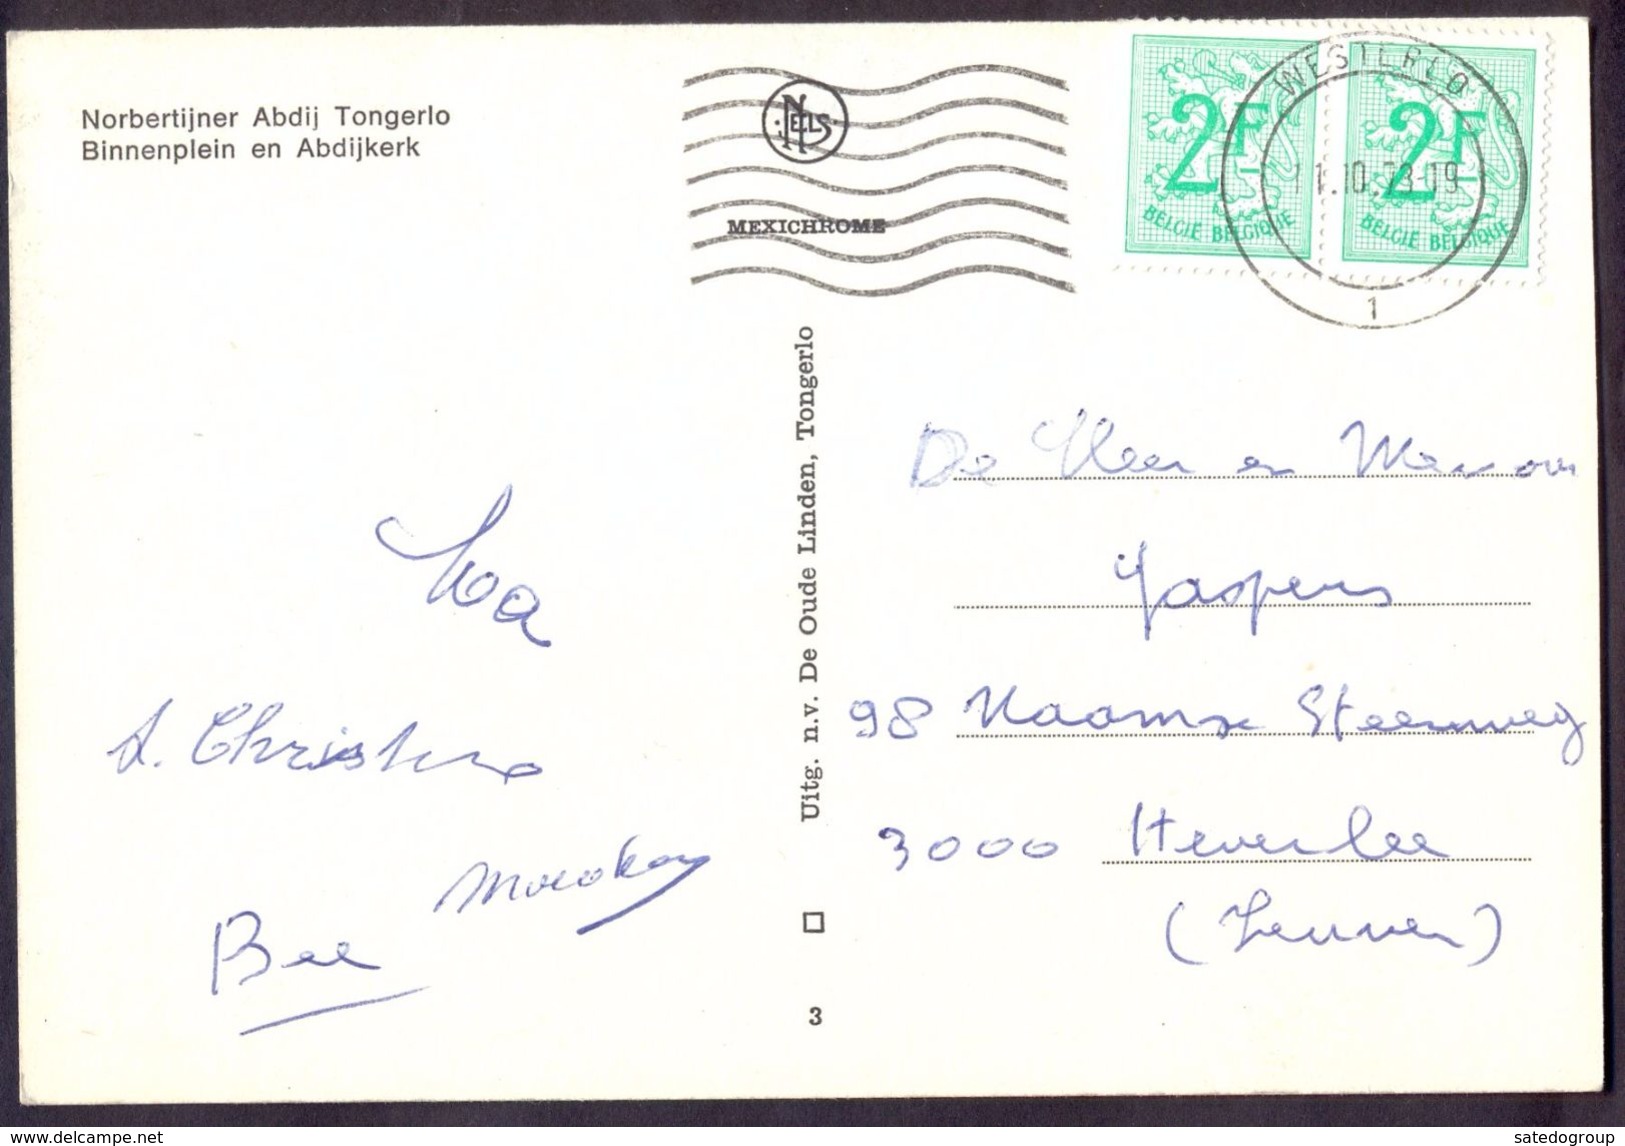 Norbertijner Abdij Tongerlo
Binnenplein en Abdijkerk
NELS
MEXICHROME
2F
BELGIË BELGIQUE
2F
BELGIË BELGIQUE
WESTERLO
11.10.73-19
1
Uitg. n.v. De Oude Linden, Tongerlo
3
De Heer en Mevrouw
Jaspers
98 Naamse Steenweg
3000 Heverlee
(Leuven)
delcampe.net
satedogroup